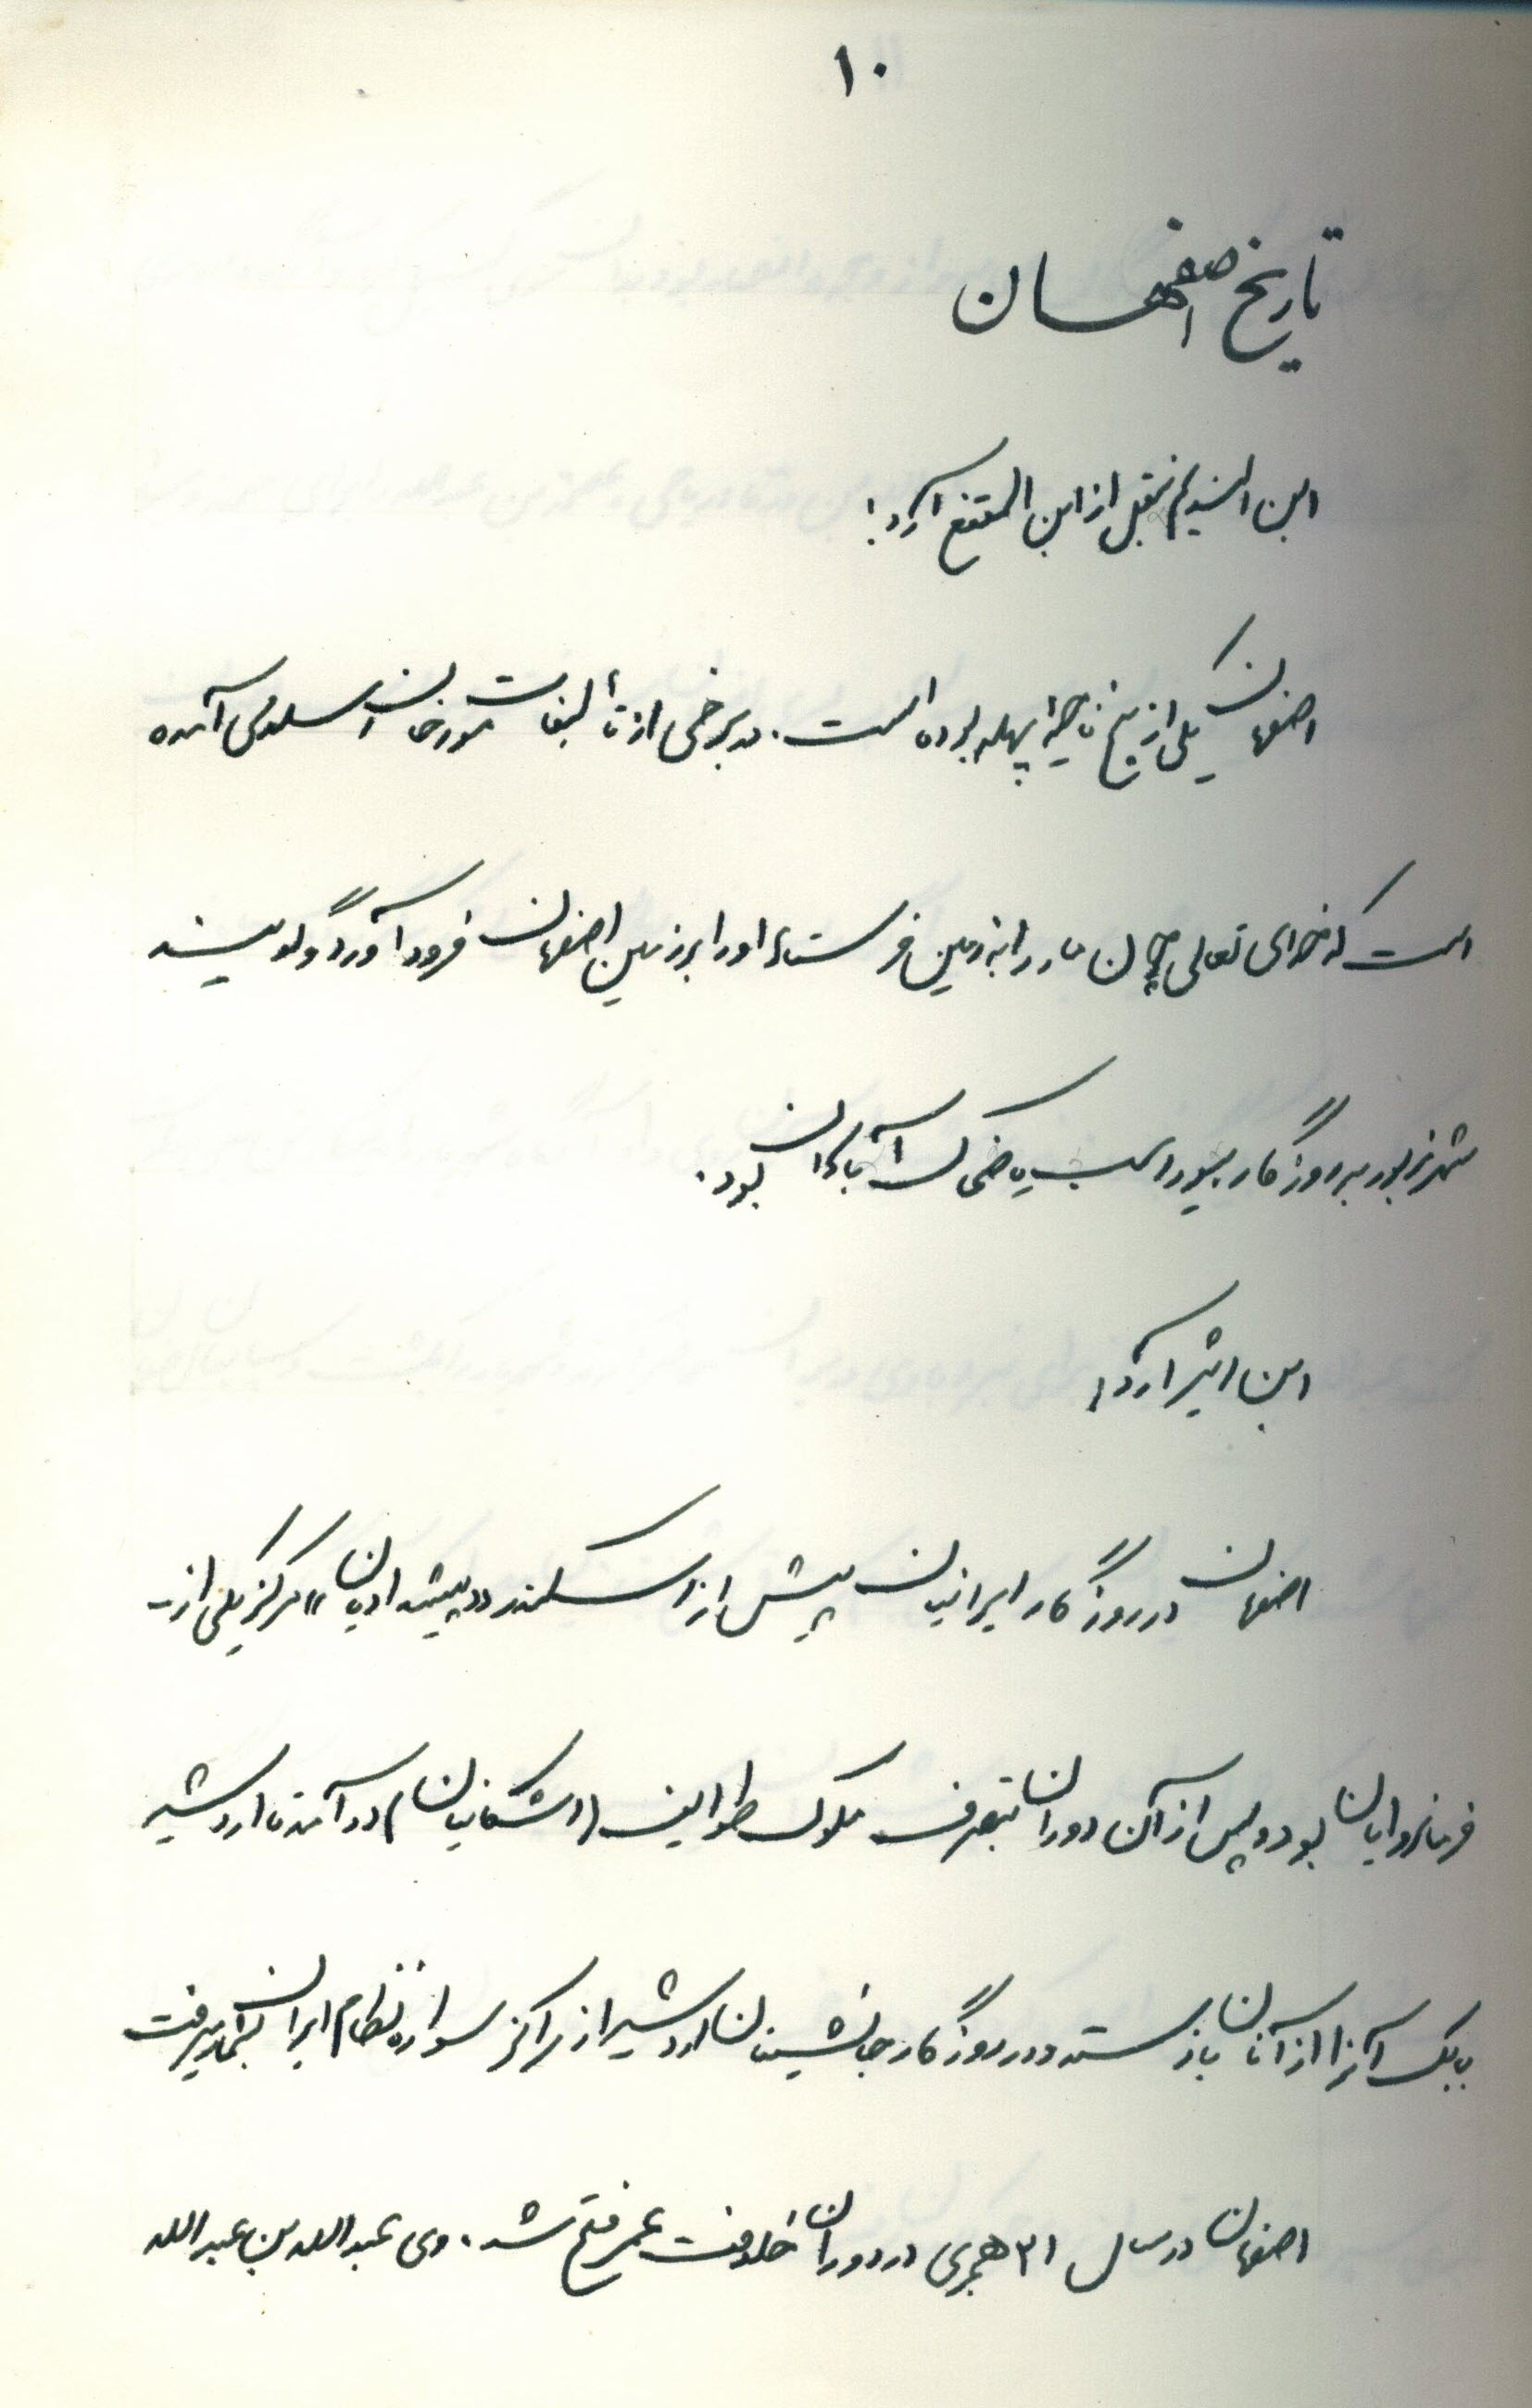 ۱۰
تاریخ اصفهان
ابن الندیم بنقل از ابن المقفع آرد:
اصفهان یکی از پنج ناحیه پهله بوده است. در برخی از تألیفات مورخان اسلامی آمده
است که خدای تعالی چون مار را بزمین فرستاد او را بر زمین اصفهان فرود آورد و گویند
شهر مزبور به روزگار بیوراسب یا ضحاک آبادان بود.
ابن اثیر آرد:
اصفهان در روزگار ایرانیان پیش از اسکندر «پیشدادیان» مرکز یکی از
فرمانروایان بود و پس از آن دوران بتصرف ملوک طوایف (اشکانیان) در آمد تا اردشیر
بابک آنرا از آنان بازستد و در روزگار جانشینان اردشیر از مراکز سواره نظام ایران بشمار میرفت
اصفهان در سال ۳۱ هجری در دوران خلافت عمر فتح شد. وی عبدالله بن عبدالله